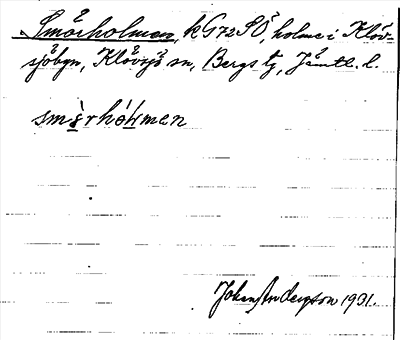 Smörholmen, k G72SÖ, holme i Klöv-
sjöbyn, Klövsjö sn, Bergs tg, Jämtl. l.
smö̀rhól̵men
Johan Anderson 1931.